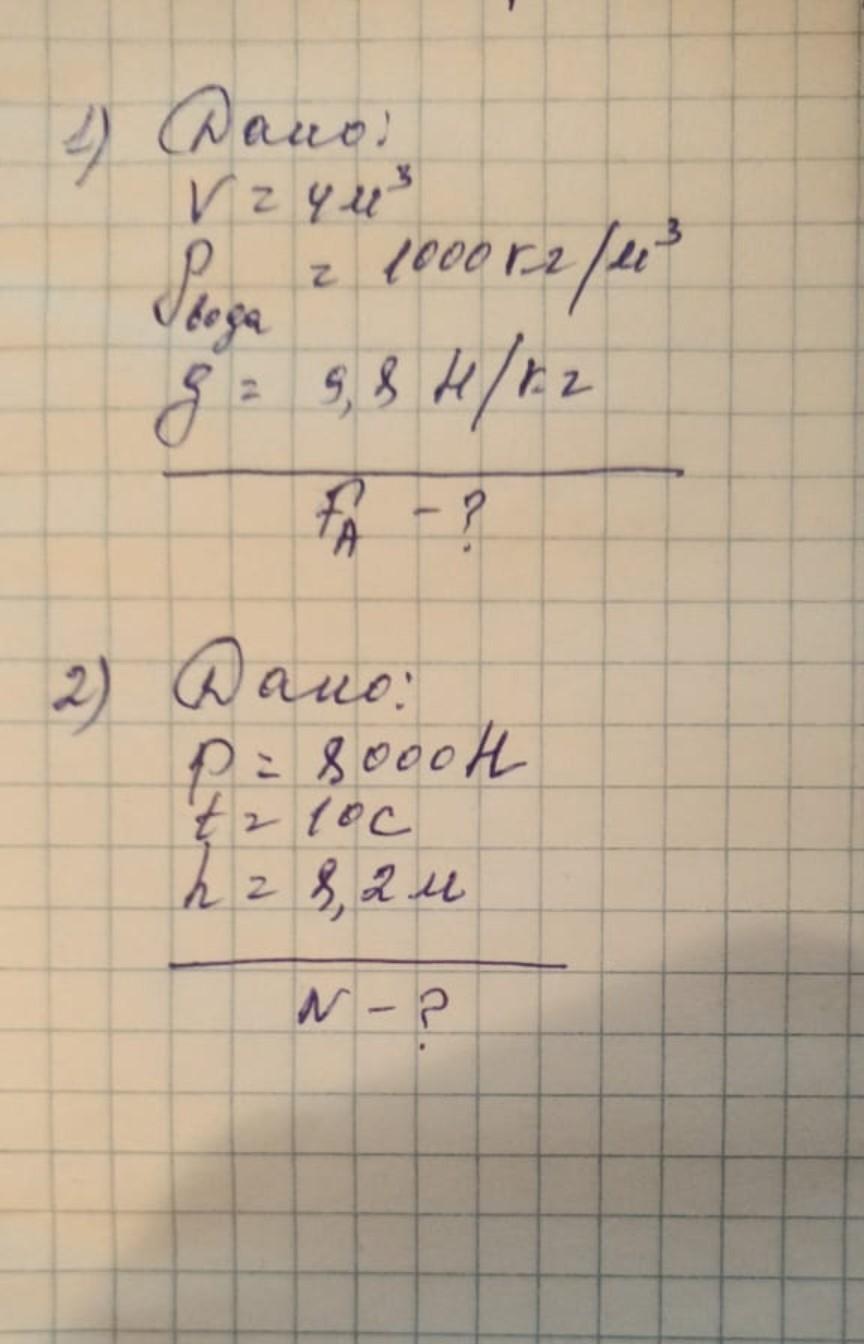 1) Дано:
V = 4 м³
ρвода = 1000 кг/м³
g = 9,8 Н/кг
FА - ?
2) Дано:
P = 8000 Н
t = 10 с
h = 8,2 м
N - ?